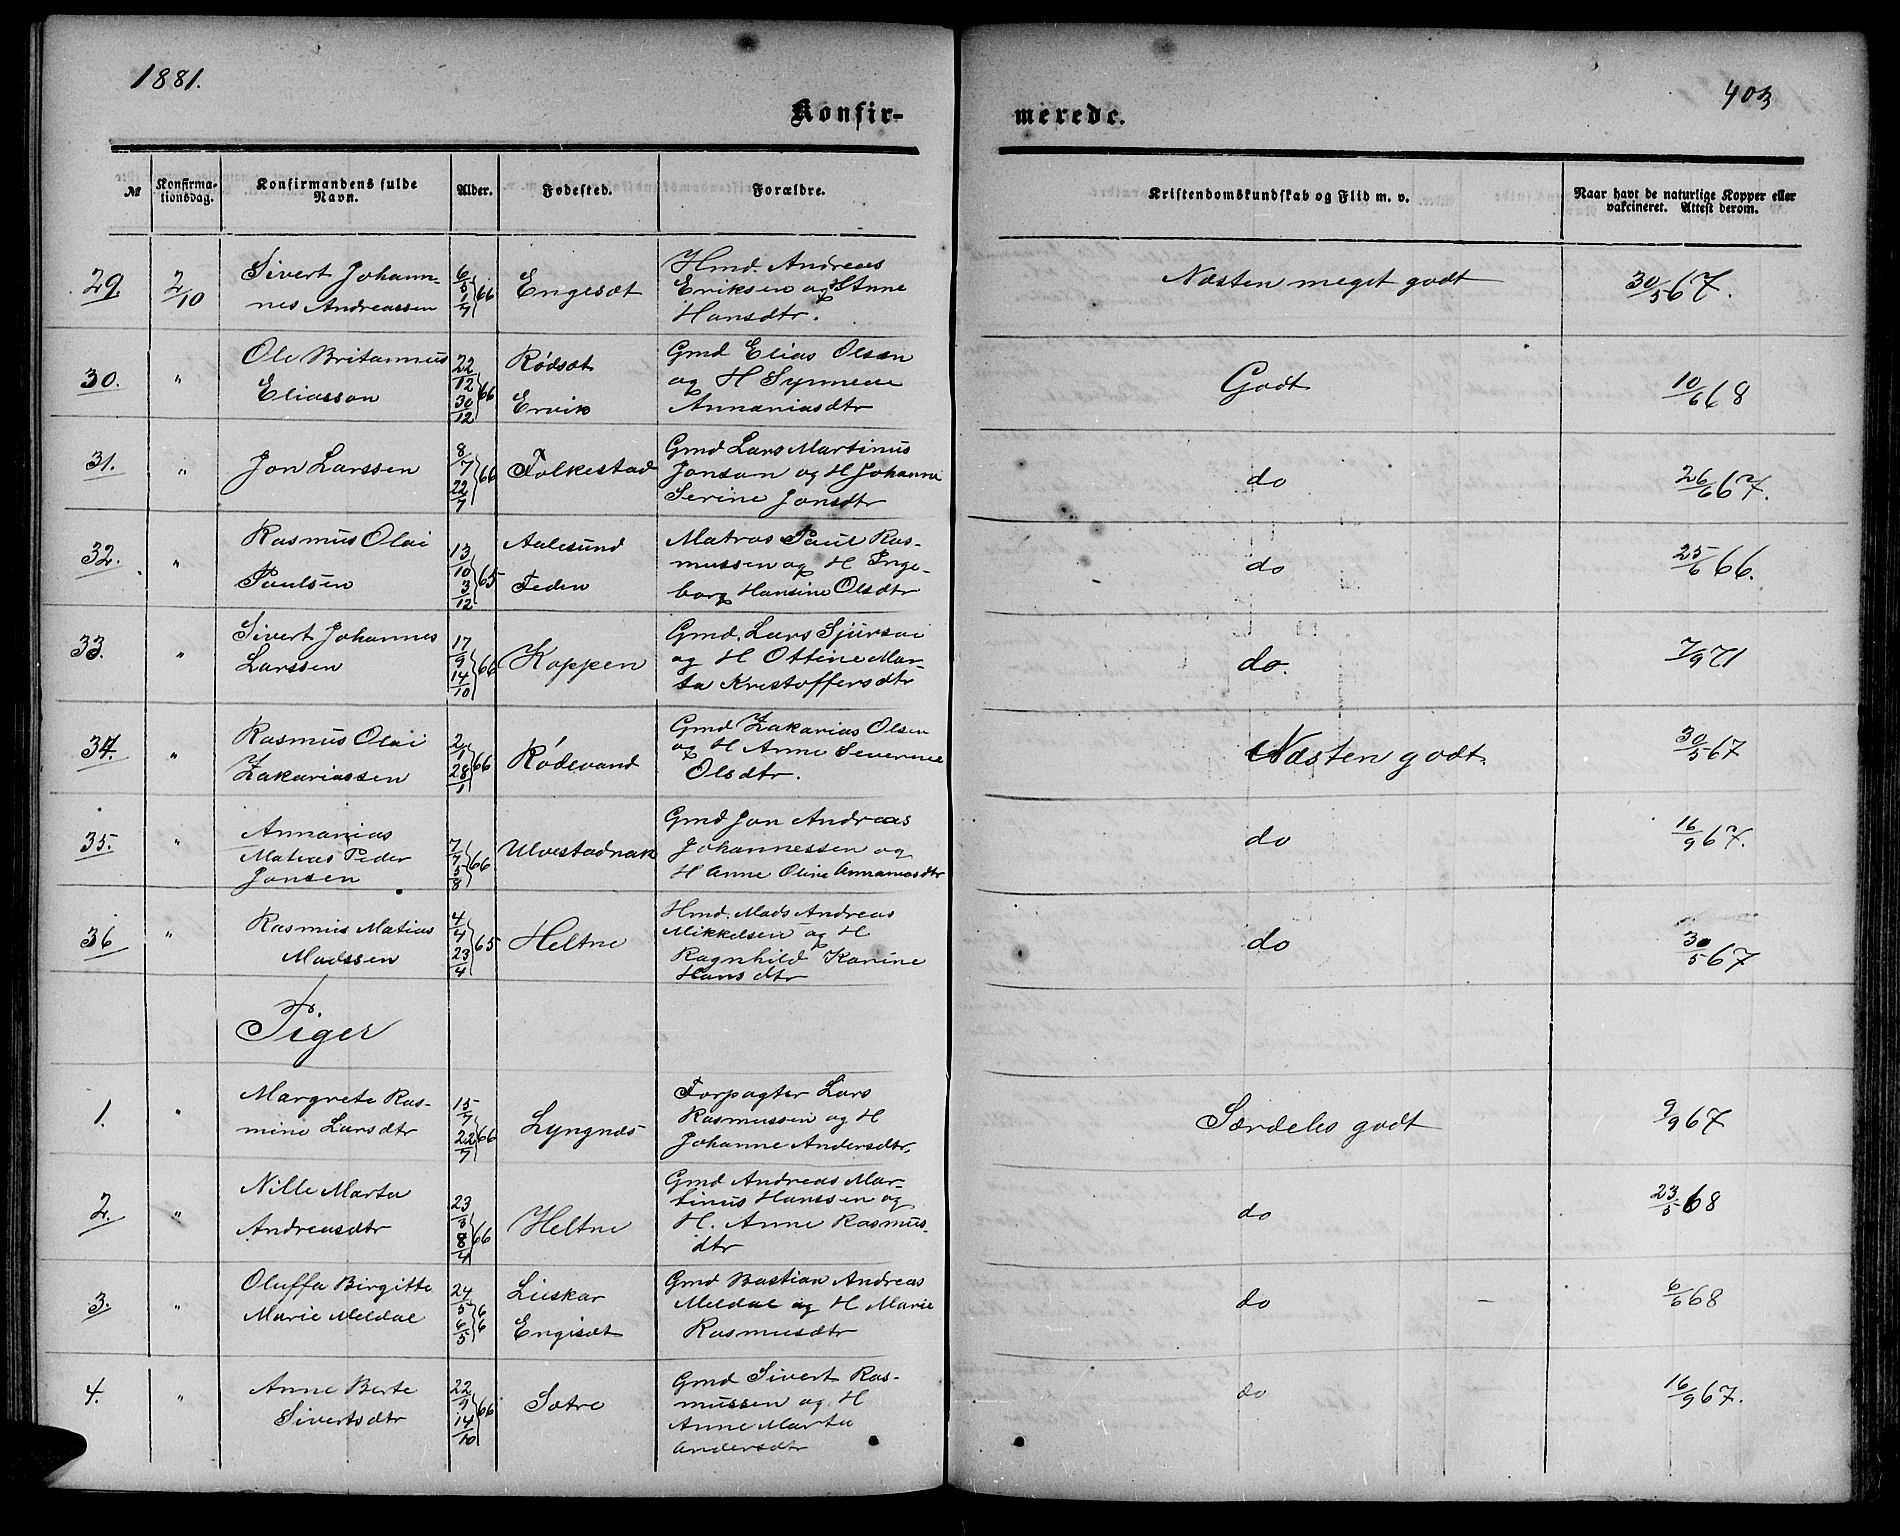 1881.
403
Konfir-
merede.
№
Konfirma-
tionsdag.
Konfirmandens fulde
Navn.
Alder.
Fødested.
Forældre.
Kristendomskundskab og Flid m. v.
Naar havt de naturlige Kopper eller
vakcineret. Attest derom.
29. 2/10 Sivert Johann- 6/5 66 Engesæt Hmd. Andreas Næsten meget godt 30/5 67.
nes Andreassen 1/7 Eriksen og H Anne
Hansdtr.
30. " Ole Britannus 22/12 66 Rødsæt Gmd Elias Olsen Godt 10/6 68
Eliassen 30/12 Ervik og H Synneve
Annaniasdtr
31. " Jon Larssen 8/7 66 Folkestad Gmd Lars Martinus do 26/6 67.
22/7 Jonsen og H Johanne
Serine Jonsdtr
32. " Rasmus Olai 13/10 65 Aalesund Matros Paul Ras- do 25/6 66.
Paulsen 3/12 Feden mussen og H Inge-
borg Hansine Olsdtr
33. " Sivert Johannes 17/9 66 Koppen Gmd. Lars Sjursen do. 7/9 71
Larssen 14/10 og H Ottine Mar-
ta Kristoffersdtr
34. " Rasmus Olai 2/1 66 Rødevand Gmd Zakarias Olsen Næsten godt 30/5 67
Zakariassen 28/1 og H Anne Severine
Olsdtr.
35. " Annanias 7/7 66 Ulvestadnak Gmd Jon Andreas do 16/9 67.
Matias Peder 5/8 Johannessen og
Jonsen H Anne Oline Annaniasdtr
36 " Rasmus Matias 4/4 65 Heltne Hmd. Mads Andreas do 30/5 67
Madssen 23/4 Mikkelsen og H
Ragnhild Karine
Hansdtr
Piger
1. " Margrete Ras- 15/7 66 Lyngnes Forpagter Lars Særdeles godt 9/9 67
mine Larsdtr 22/7 Rasmussen og H
Johanne Andersdtr.
2. " Nille Marta 23/3 66 Heltne Gmd Andreas Mar- do 23/5 68
Andreasdtr 8/4 tinus Hanssen og
H. Anne Rasmus-
dtr
3. " Oluffa Birgitte 24/5 66 Liaskar Gmd Bastian Andreas do 6/6 68
Marie Meldal 6/5 Engisæt Meldal og H Marie
Rasmusdtr
4. " Anne Berte 22/9 66 Sætre Gmd Sivert Ras- do 16/9 67.
Sivertsdtr 14/10 mussen og H
Anne Marta
Andersdtr